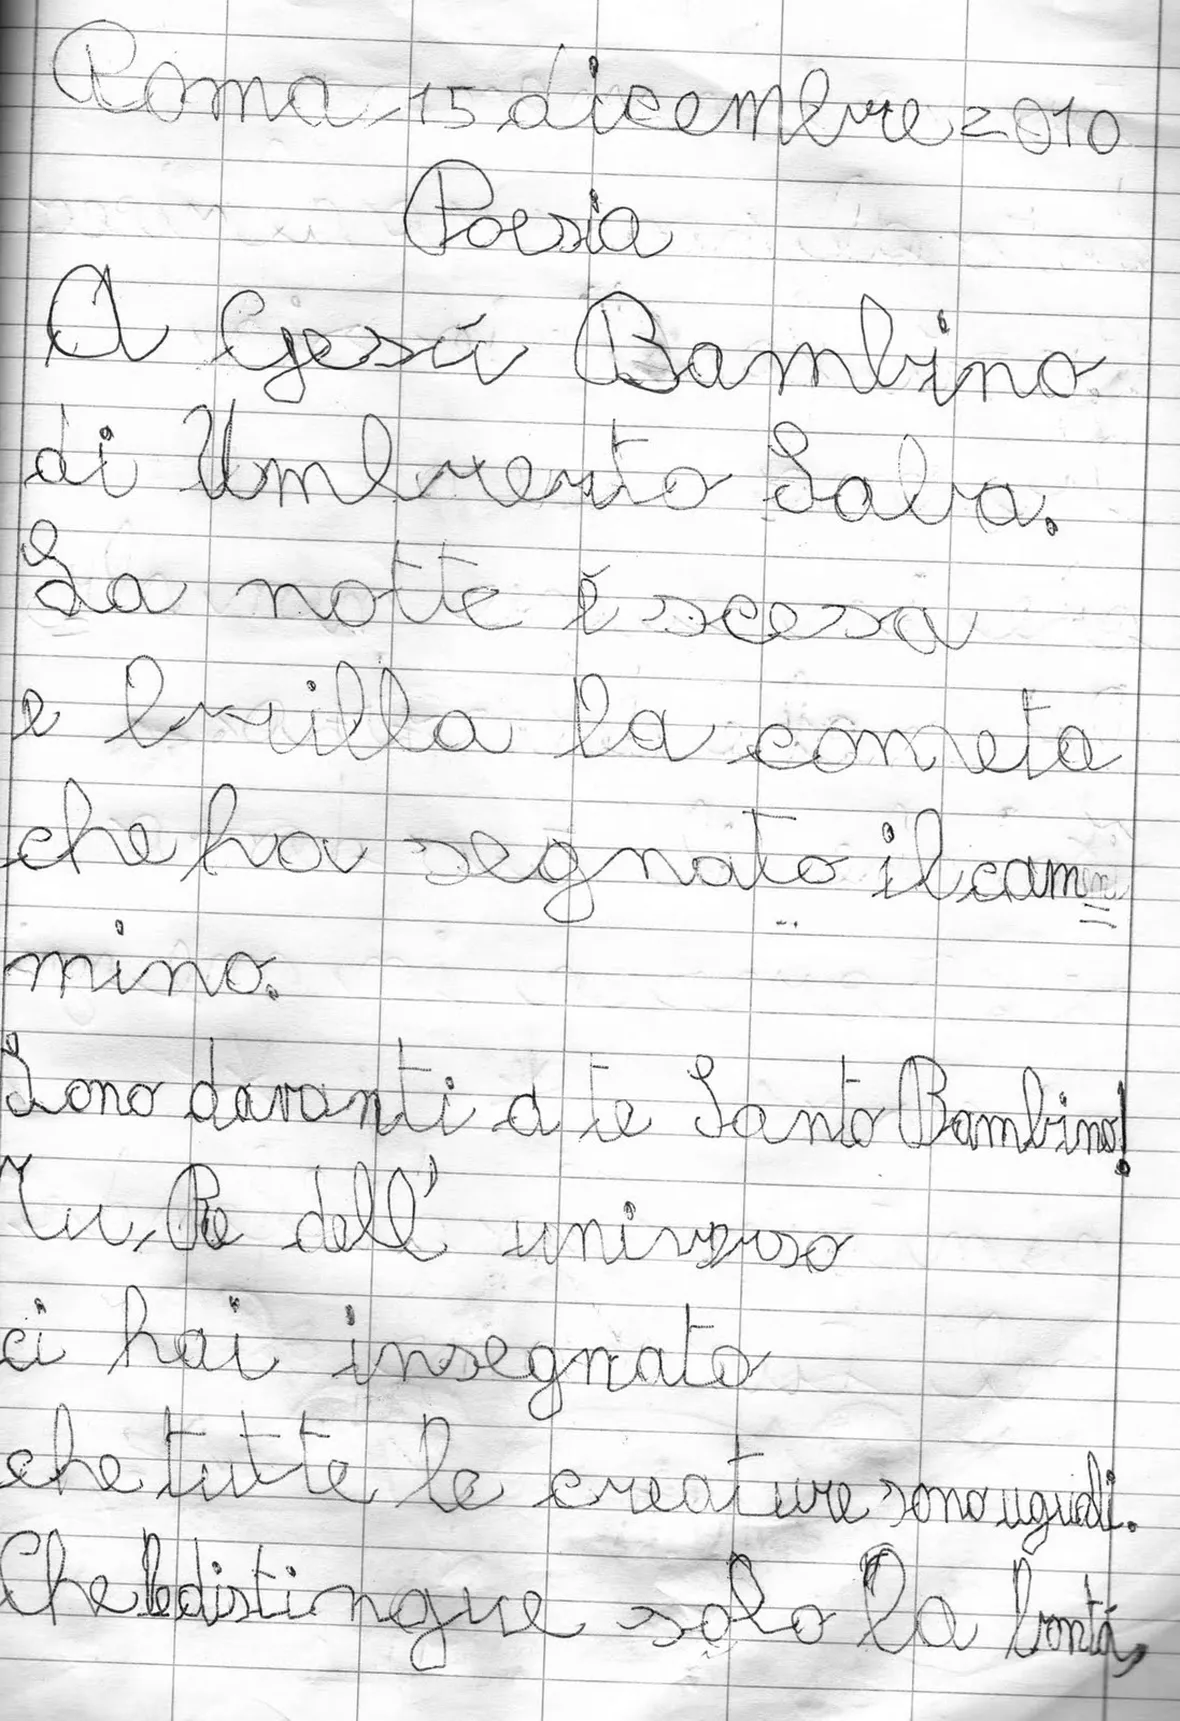 Roma, 15 dicembre 2010
Poesia
A Gesú Bambino
di Umbrerto Saba.
La notte è scesa
e brilla la cometa
che ha segnato il cam=
mino.
Sono davanti a te Santo Bambino!
Tu, Re dell' universo
ci hai insegnato
che tutte le creature sono uguali.
Che le distingue solo la bontá,